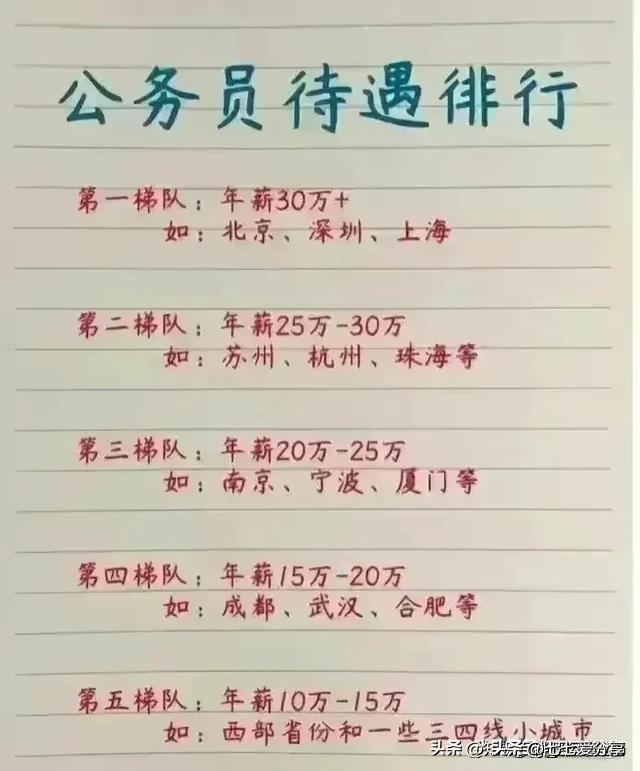 公务员待遇徘行
第一梯队：年薪30万+
如：北京、深圳、上海
第二梯队：年薪25万-30万
如：苏州、杭州、珠海等
第三梯队：年薪20万-25万
如：南京、宁波、厦门等
第四梯队：年薪15万-20万
如：成都、武汉、合肥等
第五梯队：年薪10万-15万
如：西部省份和一些三四线小城市
头条 @七七爱分享